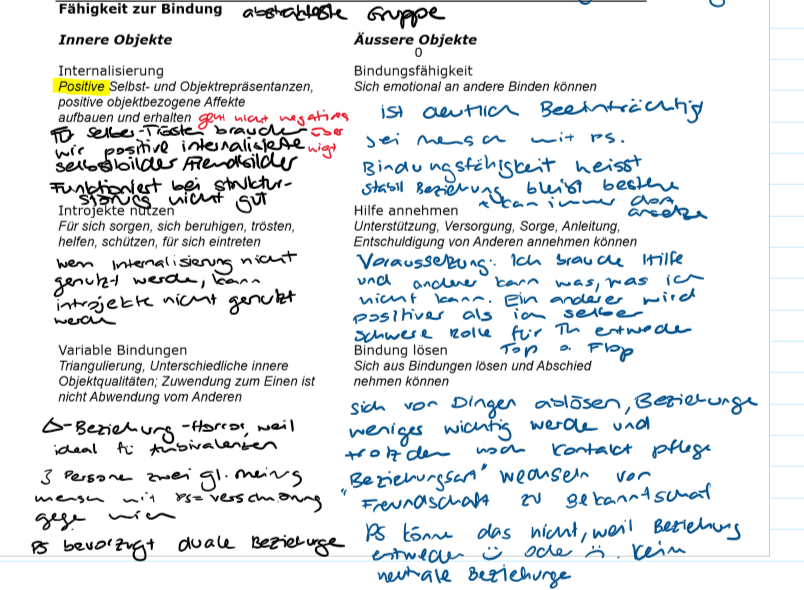 Fähigkeit zur Bindung abstrakteste Gruppe
Innere Objekte
Internalisierung
Positive Selbst- und Objektrepräsentanzen,
positive objektbezogene Affekte
aufbauen und erhalten geht nicht negatives
über
wigt
selber-Trösten brauchen
wir positive internalisiete
selbstbilder Fremdbilder
Funktioniert bei struktur-
störung nicht gut
Introjekte nutzen
Für sich sorgen, sich beruhigen, trösten,
helfen, schützen, für sich eintreten
wenn Internalisierung nicht
genutzt werde, kann
introjekte nicht genutzt
werde
Variable Bindungen
Triangulierung, Unterschiedliche innere
Objektqualitäten; Zuwendung zum Einen ist
nicht Abwendung vom Anderen
Δ-Beziehung -Horror, weil
ideal für Ambivalenzen
3 Persone zwei gl. meinung
mensch mit PS = verschwörung
gege mich
PS bevorzugt duale Beziehunge
Äussere Objekte
0
Bindungsfähigkeit
Sich emotional an andere Binden können
ist deutlich Beeinträchtig
bei mensch mit PS.
Bindungsfähigkeit heisst
stabil Beziehung bleibt bestehe
+ kan immer dort
ansetze
Hilfe annehmen
Unterstützung, Versorgung, Sorge, Anleitung,
Entschuldigung von Anderen annehmen können
Voraussetzung: Ich brauche Hilfe
und anderer kann was, was ich
nicht kann. Ein anderer wird
positiver als ich selber
schwere Rolle für Th entwede
Top o. Flop
Bindung lösen
Sich aus Bindungen lösen und Abschied
nehmen können
sich von Dingen ablösen, Beziehunge
weniges wichtig werde und
trotzden noch Kontakt pflege
"Beziehungsart" wechseln von
Freundschaft zu Bekanntschaf
PS könne das nicht, weil Beziehung
entweder :) oder :(. Kein
neutrale Beziehunge